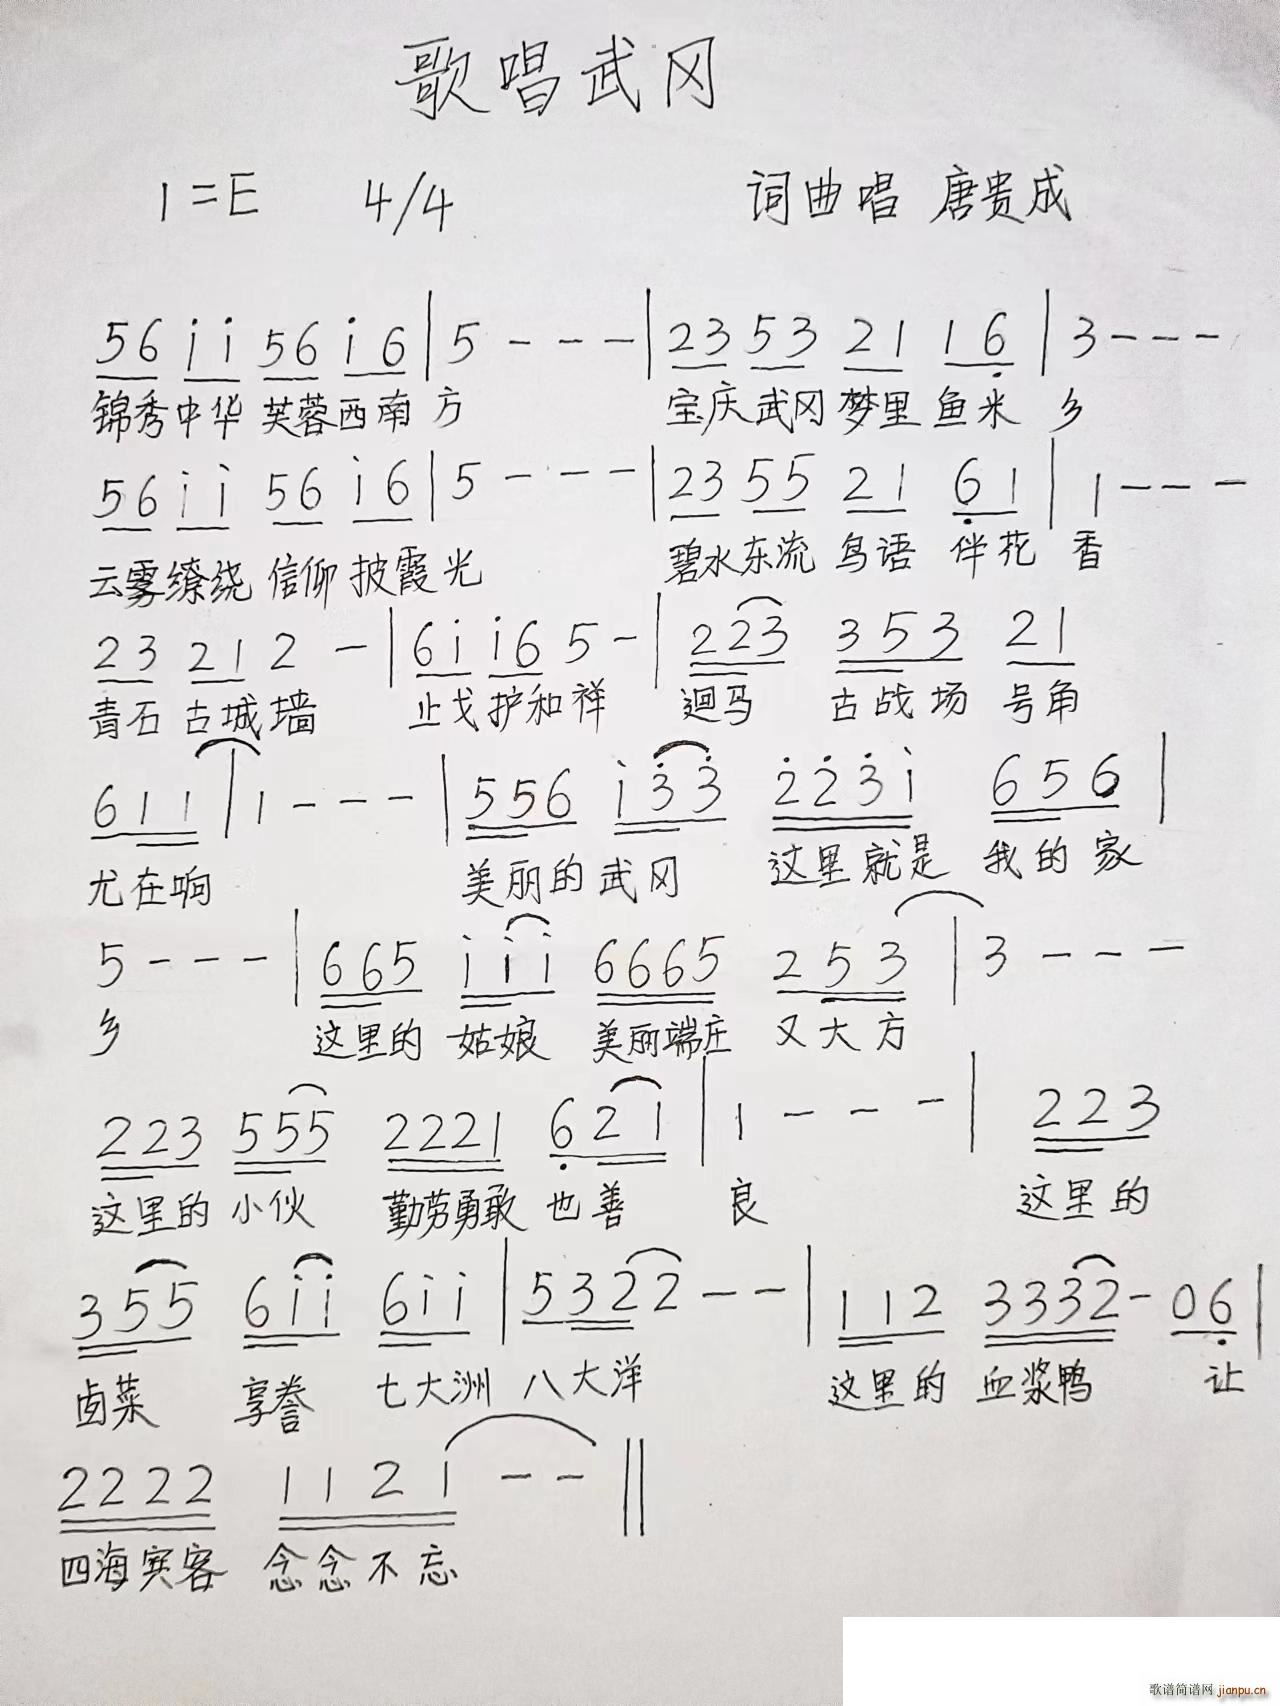 歌唱武冈
1=E 4/4 词曲唱 唐贵成
56 i̇i̇ 56 i̇6 | 5 - - - | 23 53 21 16̣ | 3 - - -
锦秀中华 芙蓉西南 方 宝庆武冈 梦里 鱼米 乡
56 i̇i̇ 56 i̇6 | 5 - - - | 23 55 21 6̣1 | 1 - - -
云雾缭绕 信仰披霞光 碧水东流 鸟语 伴花 香
23 21 2 - | 6i̇ i̇6 5 - | 223 353 21
青石 古城墙 止戈护和祥 迴马 古战场 号角
611 | 1 - - - | 556 i̇3̇3̇ 2̇2̇3̇i̇ 656 |
尤在响 美丽的武冈 这里就是 我的家
5 - - - | 665 i̇i̇i̇ 6665 253 | 3 - - -
乡 这里的 姑娘 美丽端庄 又大方
223 555 2221 6̣21 | 1 - - - | 223
这里的 小伙 勤劳勇敢 也善 良 这里的
355 6i̇i̇ 6i̇i̇ | 5322 - - | 112 3332 - 06̣ |
卤菜 享誉 七大洲 八大洋 这里的 血浆鸭 让
2222 1121 - - ‖
四海宾客 念念不忘
歌谱简谱网 jianpu.cn